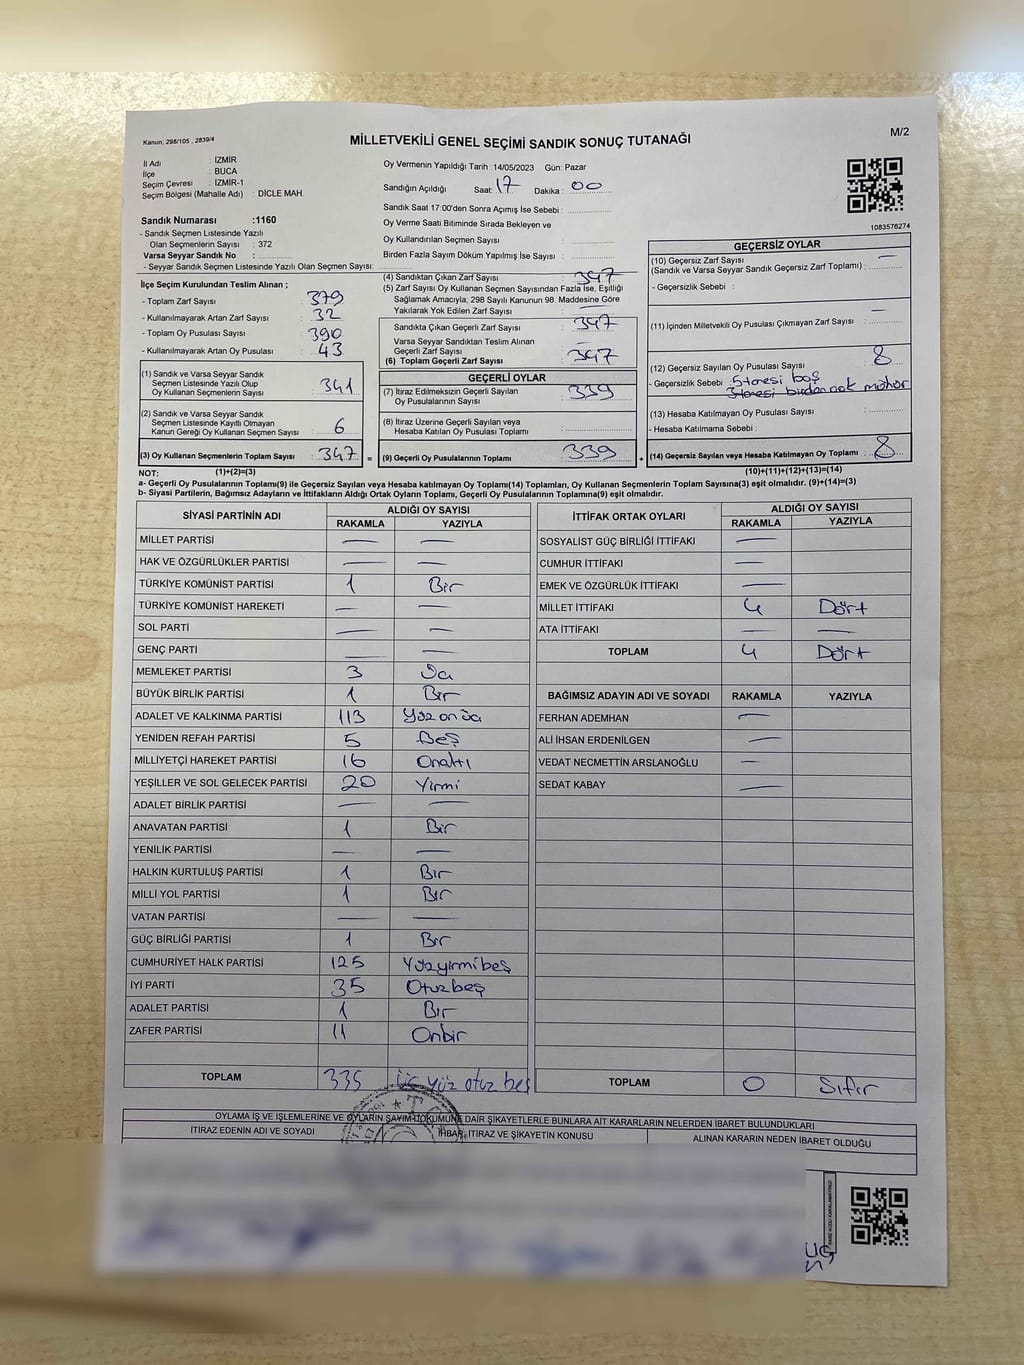 Kanun: 298/105 , 2839/4
MİLLETVEKİLİ GENEL SEÇİMİ SANDIK SONUÇ TUTANAĞI
M/2
İl Adı : İZMİR
İlçe : BUCA
Seçim Çevresi : İZMİR-1
Seçim Bölgesi (Mahalle Adı) : DİCLE MAH.
Sandık Numarası :1160
- Sandık Seçmen Listesinde Yazılı
Olan Seçmenlerin Sayısı : 372
Varsa Seyyar Sandık No :
- Seyyar Sandık Seçmen Listesinde Yazılı Olan Seçmen Sayısı:
Oy Vermenin Yapıldığı Tarih :14/05/2023 Gün: Pazar
Sandığın Açıldığı Saat : 17 Dakika : 00
Sandık Saat 17:00'den Sonra Açımış İse Sebebi :
Oy Verme Saati Bitiminde Sırada Bekleyen ve
Oy Kullandırılan Seçmen Sayısı :
Birden Fazla Sayım Döküm Yapılmış İse Sayısı :
1083576274
İlçe Seçim Kurulundan Teslim Alınan ;
- Toplam Zarf Sayısı : 379
- Kullanılmayarak Artan Zarf Sayısı : 32
- Toplam Oy Pusulası Sayısı : 390
- Kullanılmayarak Artan Oy Pusulası : 43
(1) Sandık ve Varsa Seyyar Sandık
Seçmen Listesinde Yazılı Olup
Oy Kullanan Seçmenlerin Sayısı : 341
(2) Sandık ve Varsa Seyyar Sandık
Seçmen Listesinde Kayıtlı Olmayan
Kanun Gereği Oy Kullanan Seçmen Sayısı : 6
(3) Oy Kullanan Seçmenlerin Toplam Sayısı : 347 =
(4) Sandıktan Çıkan Zarf Sayısı : 347
(5) Zarf Sayısı Oy Kullanan Seçmen Sayısından Fazla İse, Eşitliği
Sağlamak Amacıyla, 298 Sayılı Kanunun 98. Maddesine Göre
Yakılarak Yok Edilen Zarf Sayısı : —
Sandıkta Çıkan Geçerli Zarf Sayısı : 347
Varsa Seyyar Sandıktan Teslim Alınan
Geçerli Zarf Sayısı : —
(6) Toplam Geçerli Zarf Sayısı : 347
GEÇERLİ OYLAR
(7) İtiraz Edilmeksizin Geçerli Sayılan
Oy Pusulalarının Sayısı : 339
(8) İtiraz Üzerine Geçerli Sayılan veya
Hesaba Katılan Oy Pusulası Toplamı :
(9) Geçerli Oy Pusulalarının Toplamı : 339 +
GEÇERSİZ OYLAR
(10) Geçersiz Zarf Sayısı —
(Sandık ve Varsa Seyyar Sandık Geçersiz Zarf Toplamı) :
- Geçersizlik Sebebi :
(11) İçinden Milletvekili Oy Pusulası Çıkmayan Zarf Sayısı : —
(12) Geçersiz Sayılan Oy Pusulası Sayısı : 8
- Geçersizlik Sebebi : 5 tanesi boş
3 tanesi birden çok mühür
(13) Hesaba Katılmayan Oy Pusulası Sayısı :
- Hesaba Katılmama Sebebi :
(14) Geçersiz Sayılan veya Hesaba Katılmayan Oy Toplamı : 8
NOT: (1)+(2)=(3) (10)+(11)+(12)+(13)=(14)
a- Geçerli Oy Pusulalarının Toplamı(9) ile Geçersiz Sayılan veya Hesaba Katılmayan Oy Toplamı(14) Toplamları, Oy Kullanan Seçmenlerin Toplam Sayısına(3) eşit olmalıdır. (9)+(14)=(3)
b- Siyasi Partilerin, Bağımsız Adayların ve İttifakların Aldığı Ortak Oyların Toplamı, Geçerli Oy Pusulalarının Toplamına(9) eşit olmalıdır.
SİYASİ PARTİNİN ADI ALDIĞI OY SAYISI
RAKAMLA YAZIYLA
MİLLET PARTİSİ — —
HAK VE ÖZGÜRLÜKLER PARTİSİ — —
TÜRKİYE KOMÜNİST PARTİSİ 1 Bir
TÜRKİYE KOMÜNİST HAREKETİ — —
SOL PARTİ — —
GENÇ PARTİ — —
MEMLEKET PARTİSİ 3 Üç
BÜYÜK BİRLİK PARTİSİ 1 Bir
ADALET VE KALKINMA PARTİSİ 113 Yüz onüç
YENİDEN REFAH PARTİSİ 5 Beş
MİLLİYETÇİ HAREKET PARTİSİ 16 Onaltı
YEŞİLLER VE SOL GELECEK PARTİSİ 20 Yirmi
ADALET BİRLİK PARTİSİ — —
ANAVATAN PARTİSİ 1 Bir
YENİLİK PARTİSİ — —
HALKIN KURTULUŞ PARTİSİ 1 Bir
MİLLİ YOL PARTİSİ 1 Bir
VATAN PARTİSİ — —
GÜÇ BİRLİĞİ PARTİSİ 1 Bir
CUMHURİYET HALK PARTİSİ 125 Yüzyirmibeş
İYİ PARTİ 35 Otuzbeş
ADALET PARTİSİ 1 Bir
ZAFER PARTİSİ 11 Onbir
TOPLAM 335 Üç yüz otuz beş
İTTİFAK ORTAK OYLARI ALDIĞI OY SAYISI
RAKAMLA YAZIYLA
SOSYALİST GÜÇ BİRLİĞİ İTTİFAKI —
CUMHUR İTTİFAKI —
EMEK VE ÖZGÜRLÜK İTTİFAKI —
MİLLET İTTİFAKI 4 Dört
ATA İTTİFAKI — —
TOPLAM 4 Dört
BAĞIMSIZ ADAYIN ADI VE SOYADI RAKAMLA YAZIYLA
FERHAN ADEMHAN —
ALİ İHSAN ERDENİLGEN —
VEDAT NECMETTİN ARSLANOĞLU —
SEDAT KABAY —
TOPLAM 0 Sıfır
OYLAMA İŞ VE İŞLEMLERİNE VE OYLARIN SAYIM DÖKÜMÜNE DAİR ŞİKAYETLERLE BUNLARA AİT KARARLARIN NELERDEN İBARET BULUNDUKLARI
İTİRAZ EDENİN ADI VE SOYADI İHBAR, İTİRAZ VE ŞİKAYETİN KONUSU ALINAN KARARIN NEDEN İBARET OLDUĞU